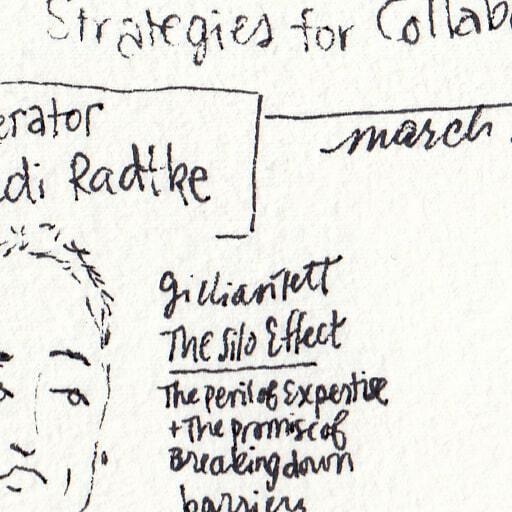 Strategies for Collab
erator
march
di Radtke
Gillian Tett
The Silo Effect
The peril of Expertise
+ The promise of
Breaking down
barriers